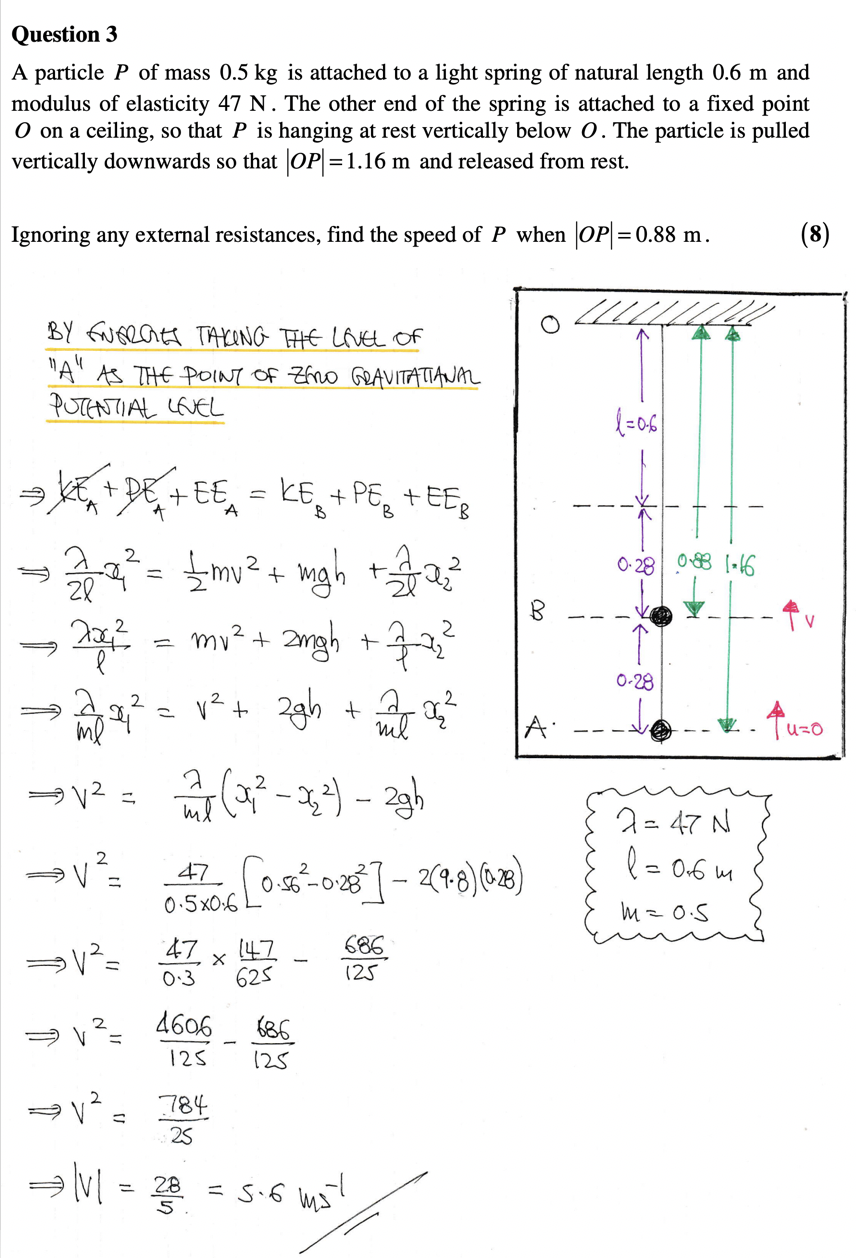 Question 3
A particle P of mass 0.5 kg is attached to a light spring of natural length 0.6 m and
modulus of elasticity 47 N. The other end of the spring is attached to a fixed point
O on a ceiling, so that P is hanging at rest vertically below O. The particle is pulled
vertically downwards so that |OP| = 1.16 m and released from rest.
Ignoring any external resistances, find the speed of P when |OP| = 0.88 m. (8)
BY ENERGIES TAKING THE LEVEL OF
"A" AS THE POINT OF ZERO GRAVITATIONAL
POTENTIAL LEVEL
⇒ KE_A + PE_A + EE_A = KE_B + PE_B + EE_B
⇒ λ/2l x₁² = 1/2 mv² + mgh + λ/2l x₂²
⇒ λx₁²/l = mv² + 2mgh + λ/l x₂²
⇒ λ/ml x₁² = v² + 2gh + λ/ml x₂²
⇒ v² = λ/ml (x₁² - x₂²) - 2gh
⇒ v² = 47/0.5×0.6 [0.56² - 0.28²] - 2(9.8)(0.28)
⇒ v² = 47/0.3 × 147/625 - 686/125
⇒ v² = 4606/125 - 686/125
⇒ v² = 784/25
⇒ |v| = 28/5 = 5.6 ms⁻¹
O
l=0.6
0.28 0.88 1.16
B
v
0.28
A
u=0
λ = 47 N
l = 0.6 m
m = 0.5